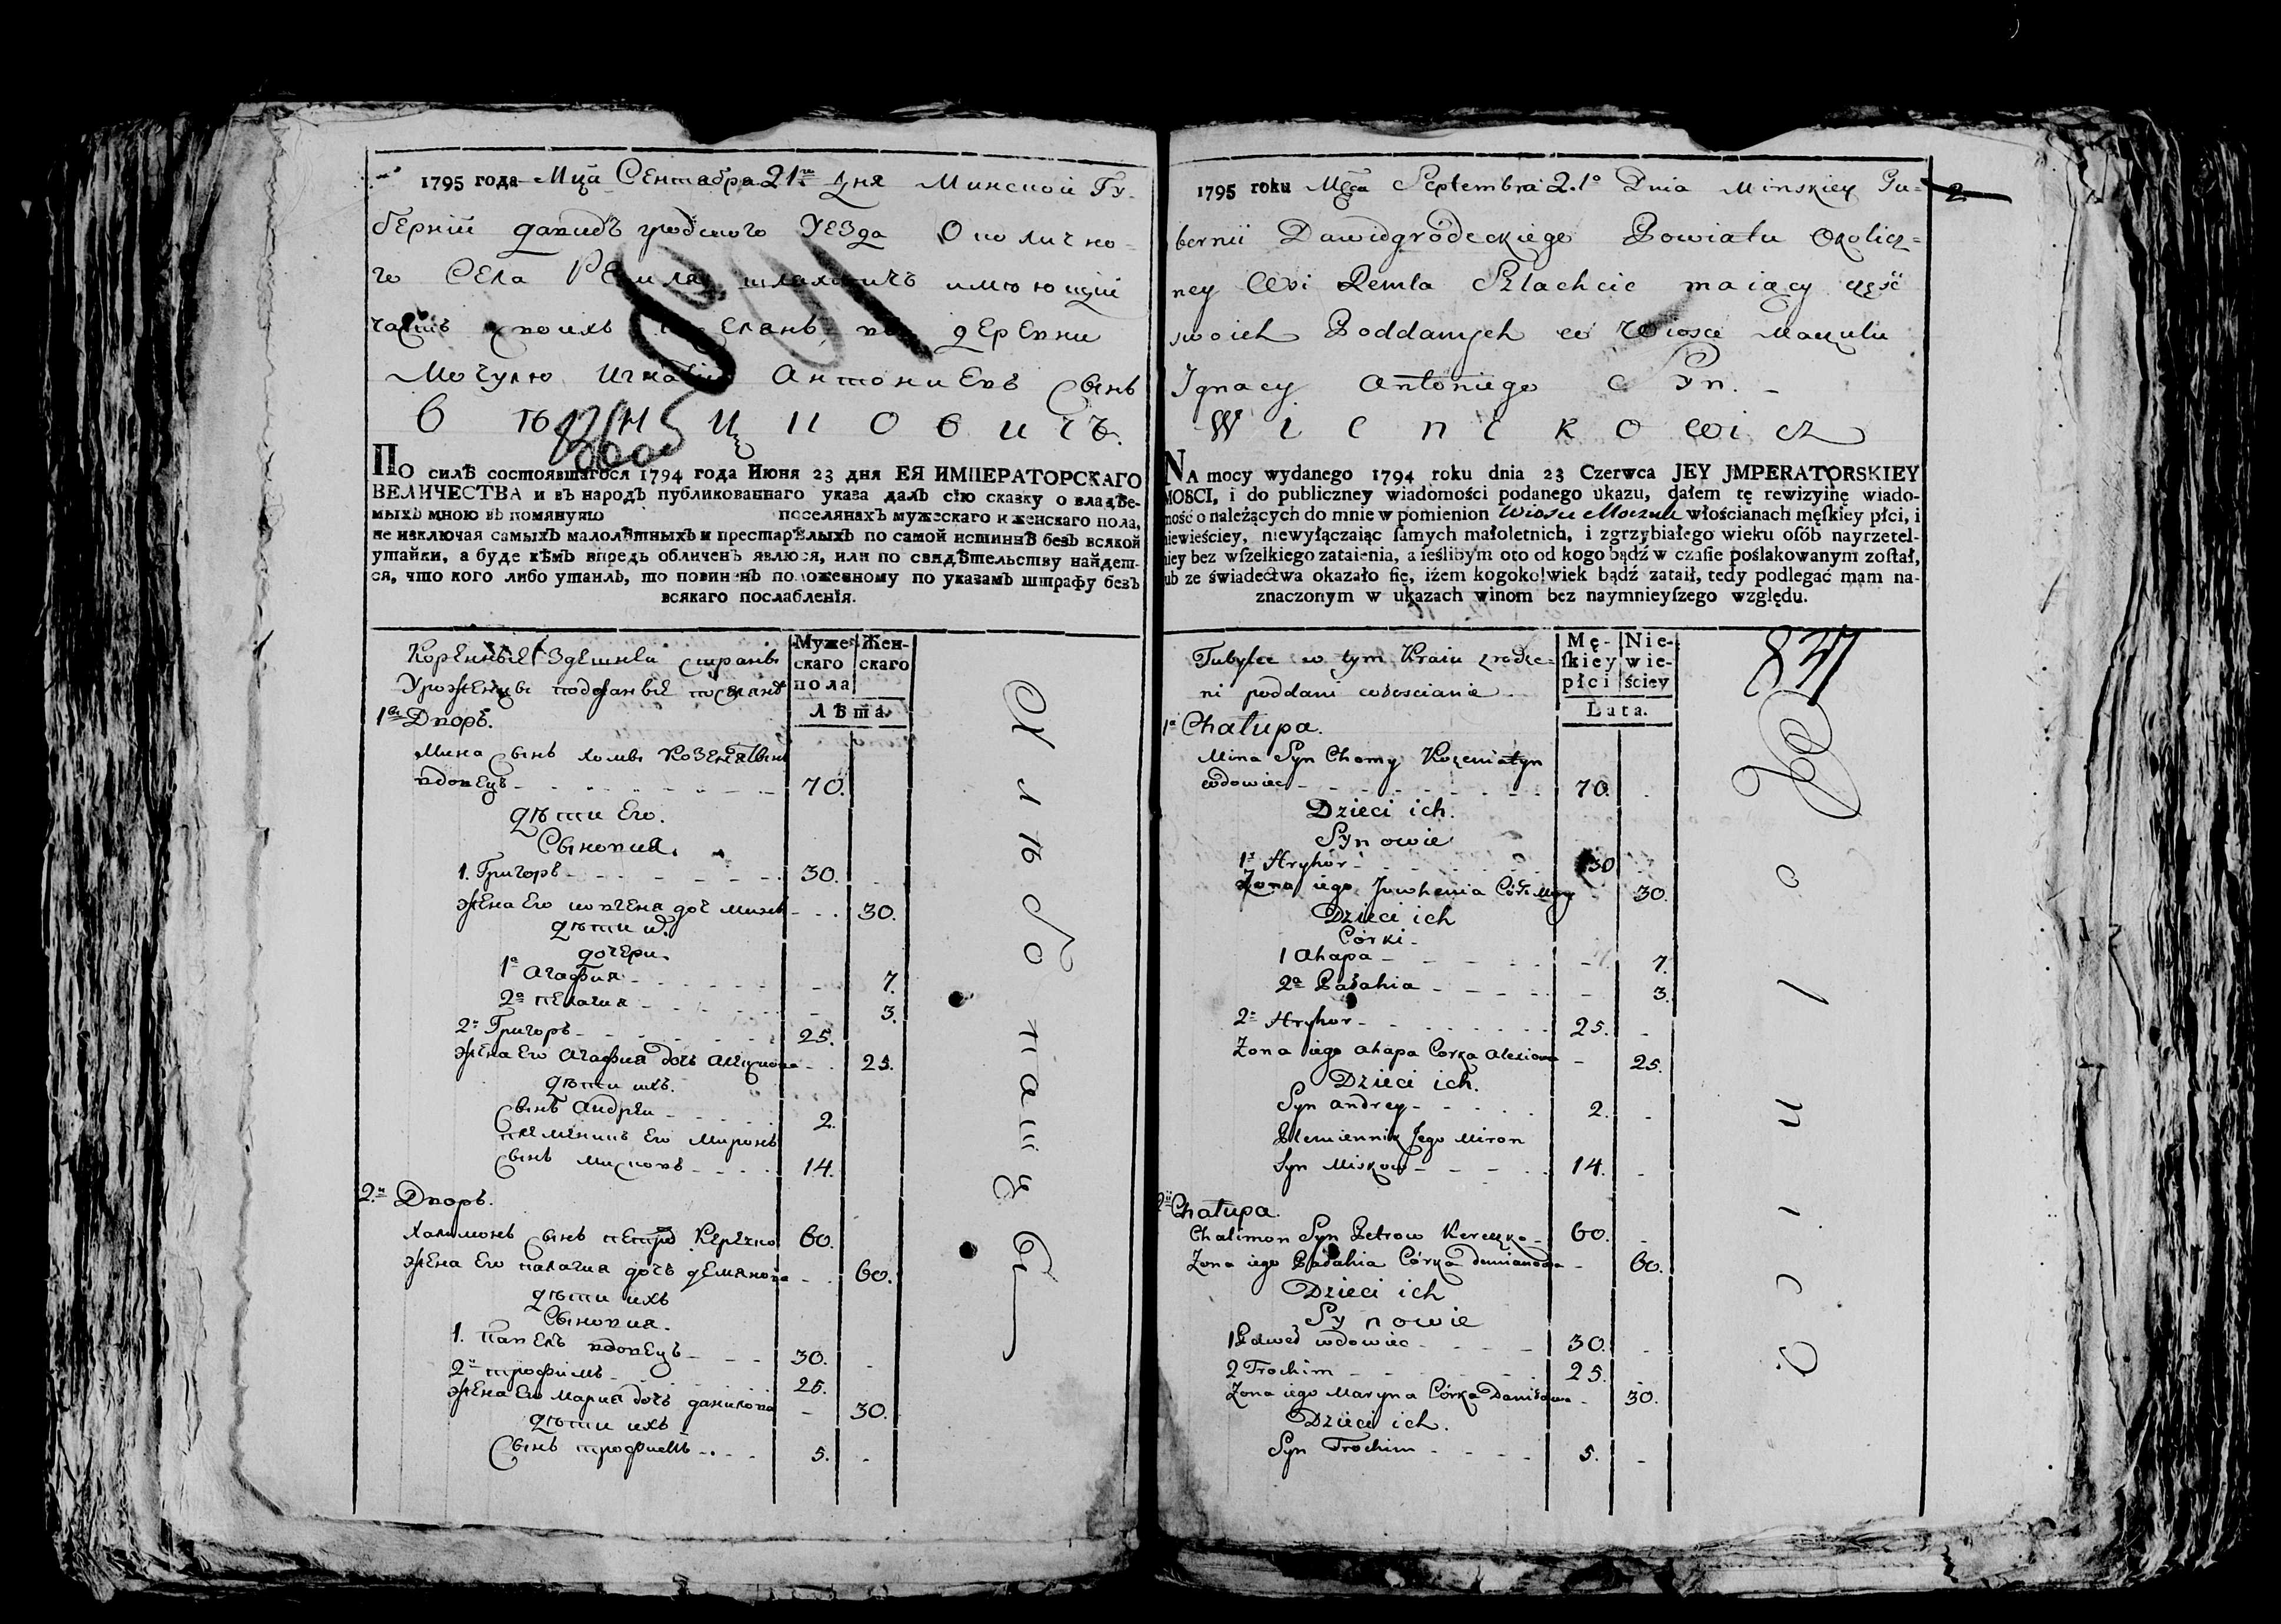 1795 года Мца Сентабра 21го Дня Минской Гу-
берніи давидъ грод:ского Уезда Околично-
го Села Ремля шляхтичъ имеющій
часть своихъ поселянъ во деревни
Мочулю Игнатій Антониевъ Сынъ
Вѣнцковичъ.
По силѣ состоявшагося 1794 года Июня 23 дня ЕЯ ИМПЕРАТОРСКАГО
ВЕЛИЧЕСТВА и въ народъ публикованнаго указа далъ сію сказку о владѣе-
мыхъ мною въ помянуто поселянахъ мужескаго и женскаго пола,
не изключая самыхъ малолѣтныхъ и престарѣлыхъ по самой истиннѣ безъ всякой
утайки, а буде кѣмъ впредь обличенъ явлюся, или по свидѣтельству найдет-
ся, что кого либо утаилъ, то повиненъ положенному по указамъ штрафу безъ
всякаго послабленія.
Коренные Здешнеи страны
Урожденцы подданые поселяне
Муже-скаго пола Жен-скаго
Лѣта.
1й Дворъ.
Мина Сынъ Хомы Козенятынъ
вдовецъ 70.
дѣти Его.
Сыновия.
1. Григоръ 30.
Жена Его дочъ 30.
дѣти их.
дочери.
1а Агафия 7.
2а пелагия 3.
2й Григоръ 25.
Жена Его Агафия дочъ 25.
дѣти ихъ.
Сынъ Андрей 2.
племеникъ Его Миронъ
Сынъ Мисковъ 14.
2й Дворъ.
Халимонъ Сынъ петров Керечко 60.
Жена Его палагия дочъ демянова 60.
дѣти ихъ
Сыновия.
1. павелъ вдовецъ 30.
2й трофимъ 25.
Жена Его Мария дочъ данилова 30.
дѣти ихъ
Сынъ трофимъ 5.
1795 roku Mca Septembra 2.1o Dnia Minskiey Gu=
bernii Dawidgrodeckiego Powiatu Okolicz=
ney Wsi Remla Szlachcic maiący część
swoich Poddanych w Wiosce Maczulu
Ignacy Antoniego Syn.
Wienckowicz
2
NA mocy wydanego 1794 roku dnia 23 Czerwca JEY JMPERATORSKIEY
MOSCI, i do publiczney wiadomości podanego ukazu, dałem tę rewizyinę wiado-
mość o należących do mnie w pomienion Wiosce Maczule włościanach męſkiey płci, i
niewieściey, niewyłączaiąc ſamych małoletnich, i zgrzybiałego wieku oſób nayrzetel-
niey bez wſzelkiego zataienia, a ieślibym oto od kogo bądź w czaſie poślakowanym zoſtał,
lub ze świadectwa okazało ſię, iżem kogokolwiek bądź zataił, tedy podlegać mam na-
znaczonym w ukazach winom bez naymnieyſzego względu.
Tubylce w tym Kraiu zrodze-
ni poddani włoscianie
Mę-ſkiey płci Nie-wie-ściey
Lata.
837
1a Chałupa.
Mina Syn Chomy Kozeniatyn
wdowiec 70.
Dzieci ich.
Synowie
1y Hryhór 30
Zona iego Juwhenia 30.
Dzieci ich
Córki
1 Ahapa 7.
2a Pałahia 3.
2y Hryhor 25.
Zona iego Ahapa Corka Alexiowa 25.
Dzieci ich.
Syn Andrey 2.
Plemiennik Jego Miron
Syn Miskow 14.
2a Chałupa
Chalimon Syn Petrow Kereczko 60.
Zona iego Pałahia Córka demianowa 60.
Dzieci ich
Synowie
1 Paweł wdowiec 30.
2 Trochim 25.
Zona iego Maryna Córka Daniłowa 30.
Dzieci ich.
Syn Trochim 5.